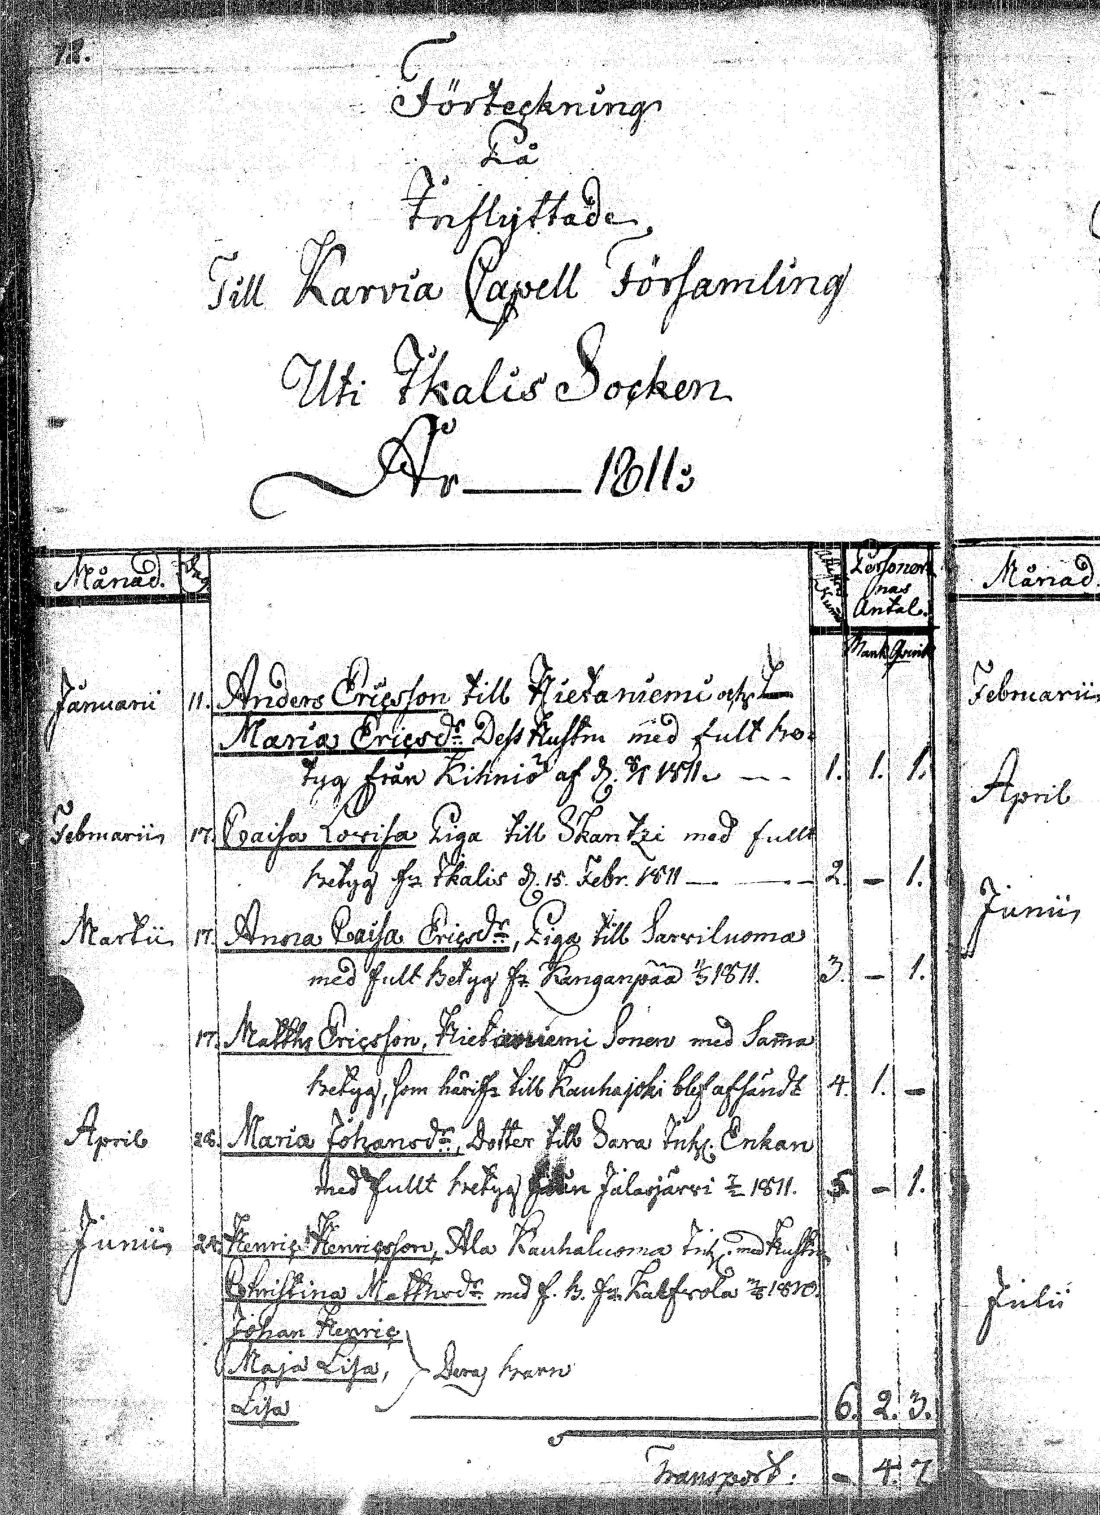 78.
Förteckning
På
Inflyttade
Till Karvia Capell Församling
Uti Ikalis Socken
År 1811:
Månad. Dag Personer
nas
Antal.
Mank. Qvink.
Januarii 11. Anders Ericsson till Hietaniemi och
Maria Ericsdr. Dess Hustru med fult be-
tyg från Kihniö af d. 1811. 1. 1. 1.
Februarii 17. Caisa Lovisa Piga till Skantzi med fullt
betyg fr. Ikalis d. 15. Febr. 1811 — 2. — 1.
Martii 17. Anna Caisa Ericsdr., Piga till Sarviluoma
med fult betyg fr. Kanganpää 1811. 3. — 1.
17. Matths Ericsson, Hietaniemi Sonen med Samma
betyg, som härifr. till Kauhajoki blef afsändt 4. 1. —
April 28. Maria Johansdr., Dotter till Sara Inh. Enkan
med fullt betyg från Jalasjärvi 1811. 5. — 1.
Junii 24. Henric Henricsson, Ala Kauhaluoma Inh. med Hustru
Christina Matthsdr. med f. b. fr. 1810.
Johan Henric
Maja Lisa, Deras barn
Lisa 6. 2. 3.
Transport: — 4. 7
Månad.
Februarii
April
Junii
Julii